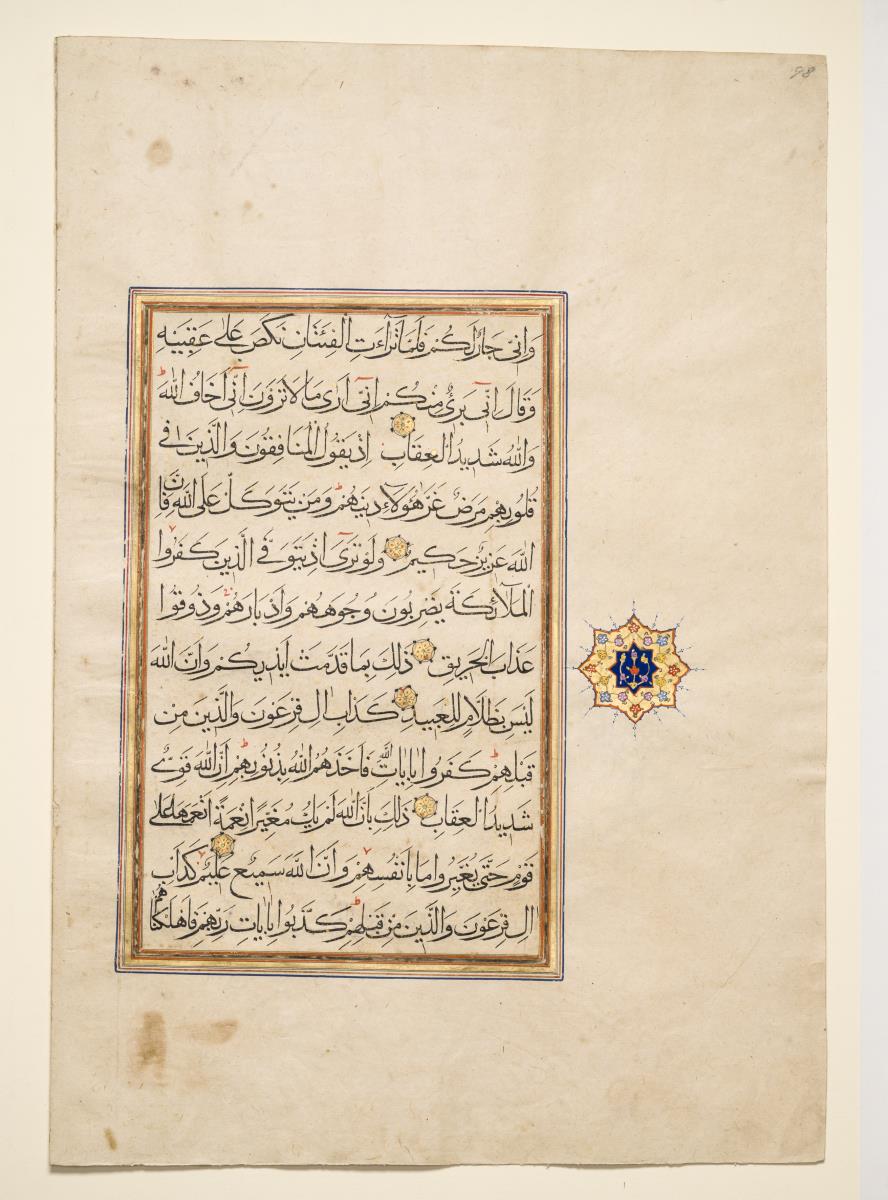 98
وَاِنّى جَارٌ لَكُمْ فَلَمَّا تَرَآءَتِ الْفِئَتَانِ نَكَصَ عَلٰى عَقِبَيْهِ
وَقَالَ اِنّى بَرِىٌ مِنْكُمْ اِنّى اَرٰى مَا لَا تَرَوْنَ اِنّى اَخَافُ اللّٰهَ
وَاللّٰهُ شَدِيدُ الْعِقَابِ اِذْ يَقُولُ الْمُنَافِقُونَ وَالَّذِينَ فِى
قُلُوبِهِمْ مَرَضٌ غَرَّ هٰؤُلَاءِ دِينُهُمْ وَمَنْ يَتَوَكَّلْ عَلَى اللّٰهِ فَاِنَّ
اللّٰهَ عَزِيزٌ حَكِيمٌ وَلَوْ تَرٰى اِذْ يَتَوَفَّى الَّذِينَ كَفَرُوا
الْمَلٰٓئِكَةُ يَضْرِبُونَ وُجُوهَهُمْ وَاَدْبَارَهُمْ وَذُوقُوا
عَذَابَ الْحَرِيقِ ذٰلِكَ بِمَا قَدَّمَتْ اَيْدِيكُمْ وَاَنَّ اللّٰهَ
لَيْسَ بِظَلَّامٍ لِلْعَبِيدِ كَدَاْبِ اٰلِ فِرْعَوْنَ وَالَّذِينَ مِنْ
قَبْلِهِمْ كَفَرُوا بِاٰيَاتِ اللّٰهِ فَاَخَذَهُمُ اللّٰهُ بِذُنُوبِهِمْ اِنَّ اللّٰهَ قَوِىٌّ
شَدِيدُ الْعِقَابِ ذٰلِكَ بِاَنَّ اللّٰهَ لَمْ يَكُ مُغَيِّرًا نِعْمَةً اَنْعَمَهَا عَلٰى
قَوْمٍ حَتّٰى يُغَيِّرُوا مَا بِاَنْفُسِهِمْ وَاَنَّ اللّٰهَ سَمِيعٌ عَلِيمٌ كَدَاْبِ
اٰلِ فِرْعَوْنَ وَالَّذِينَ مِنْ قَبْلِهِمْ كَذَّبُوا بِاٰيَاتِ رَبِّهِمْ فَاَهْلَكْنَاهُمْ